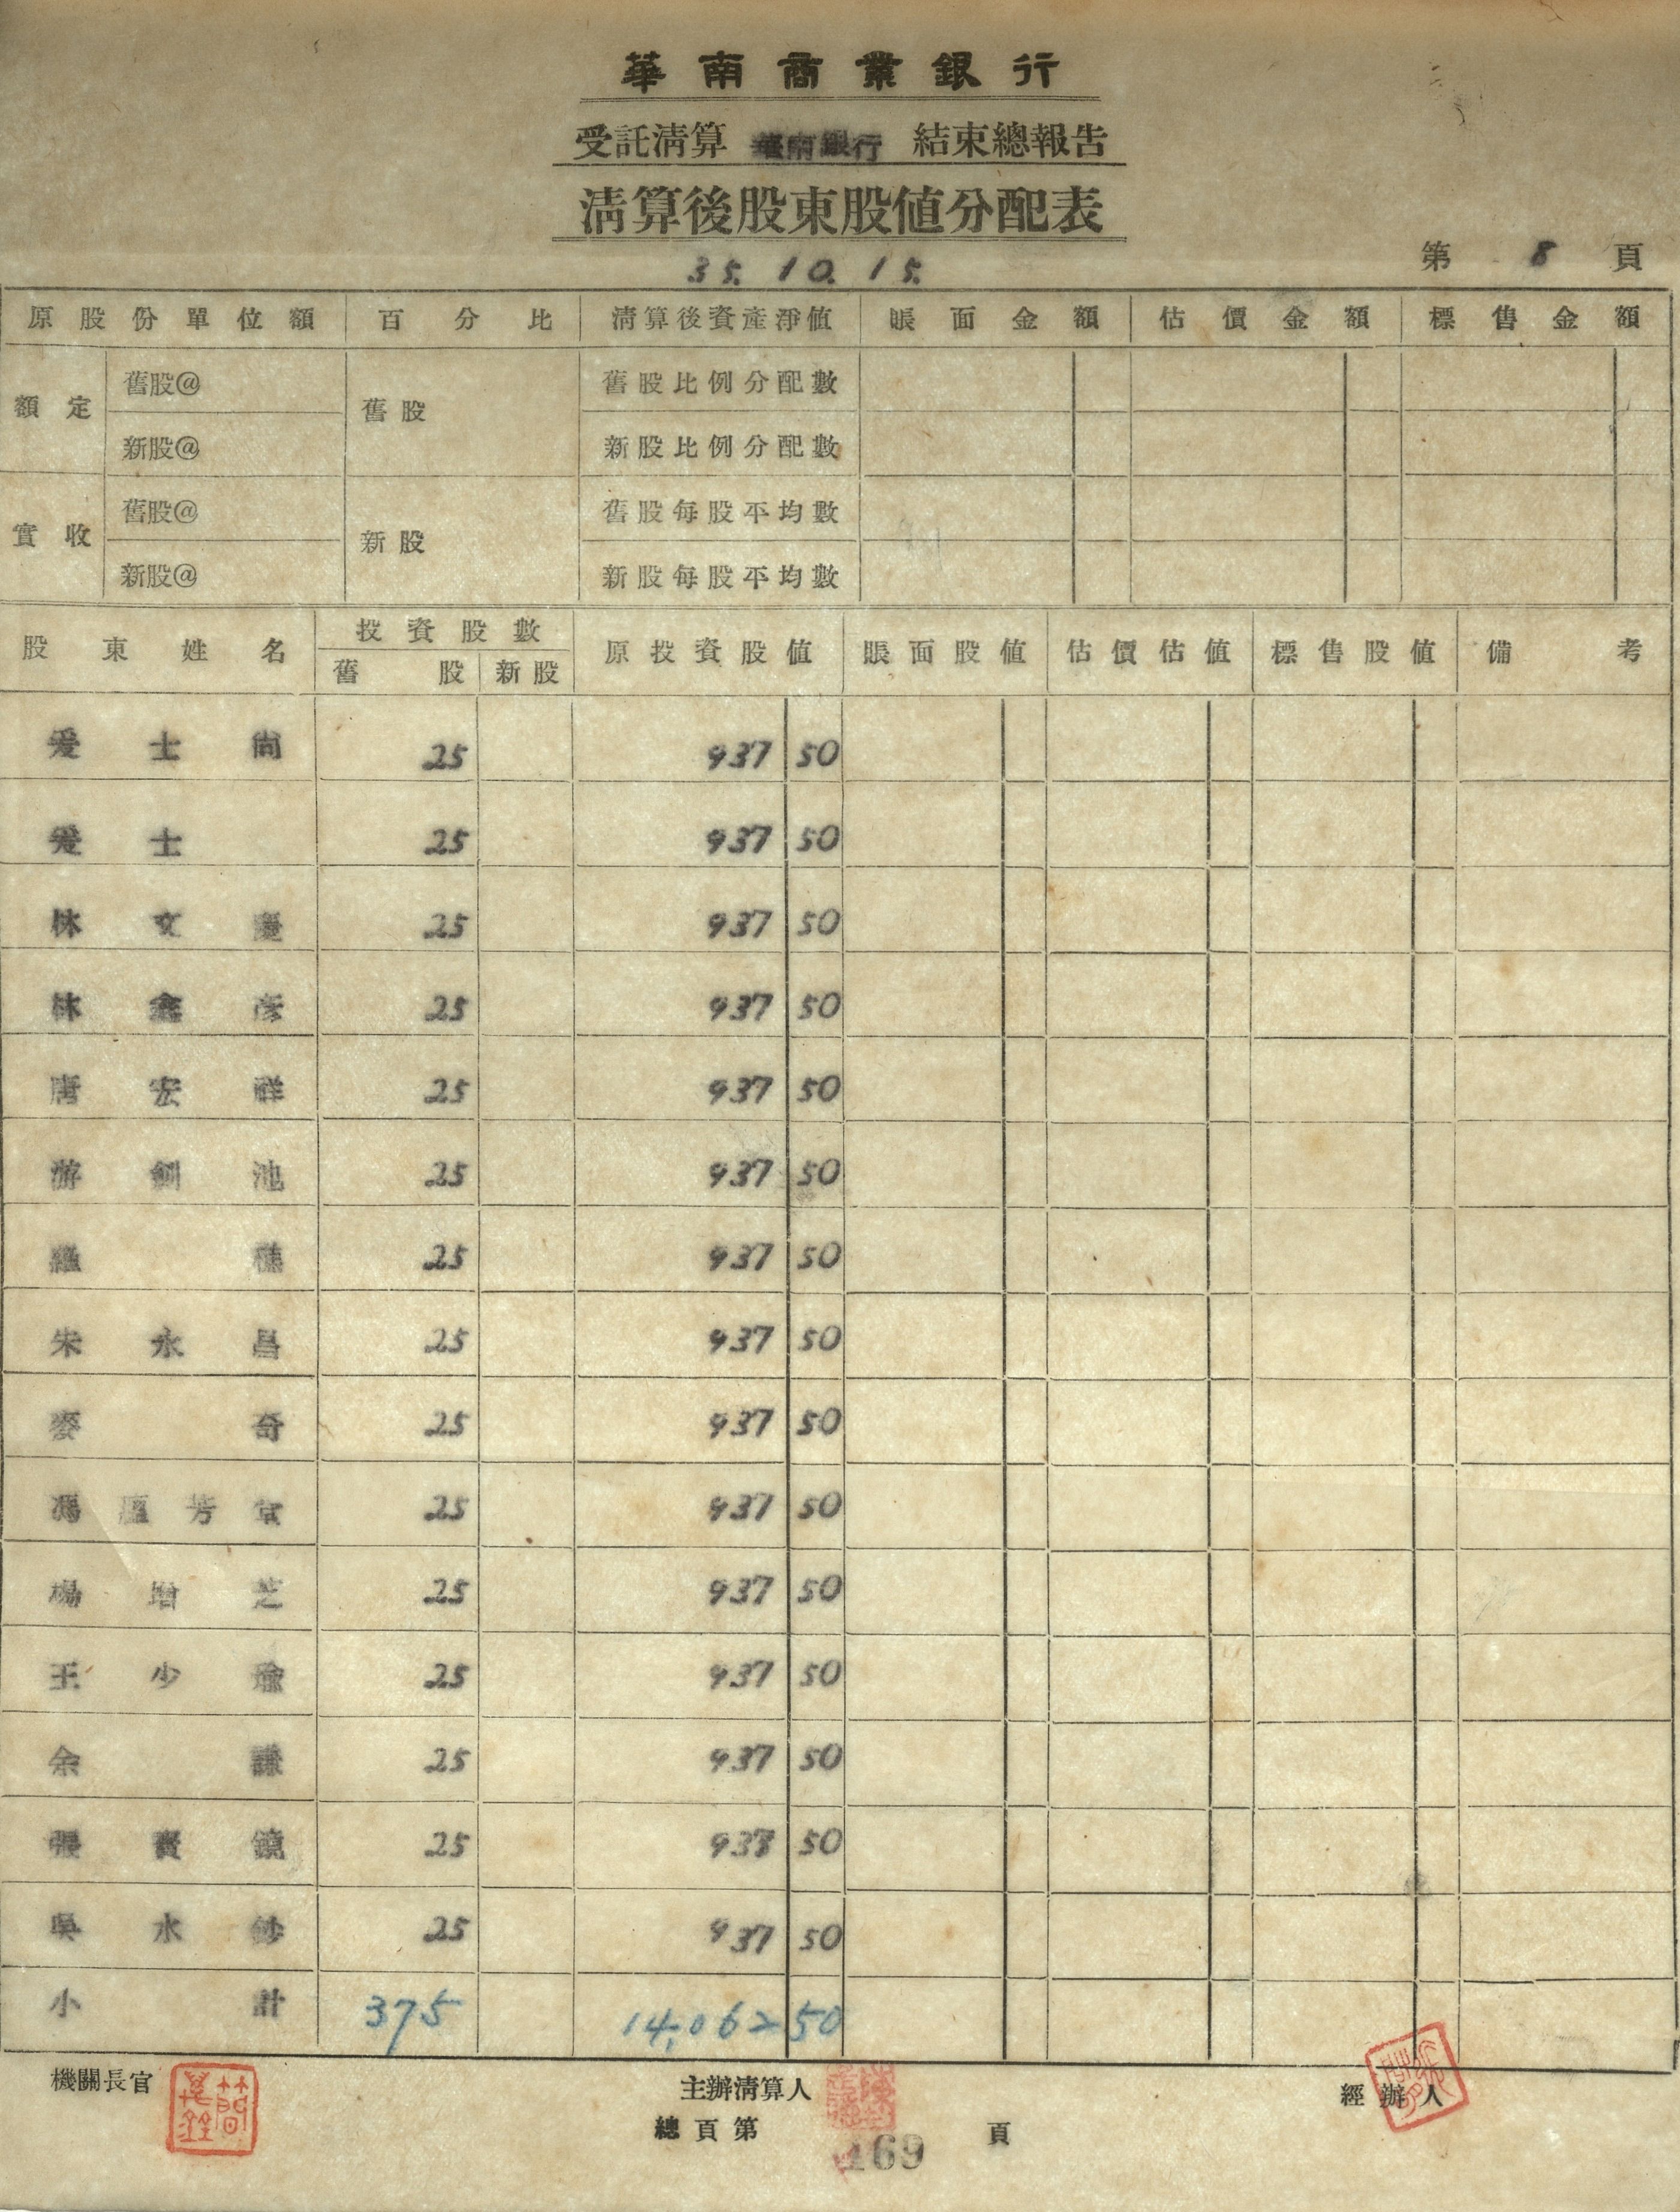 華南商業銀行
受託清算 華南銀行 結束總報告
清算後股東股值分配表
35. 10. 15.
第 8 頁
原股份單位額 百分比 清算後資產淨值 賬面金額 估價金額 標售金額
額定 舊股@ 舊股 舊股比例分配數
新股@ 新股比例分配數
實收 舊股@ 新股 舊股每股平均數
新股@ 新股每股平均數
股東姓名 投資股數 原投資股值 賬面股值 估價估值 標售股值 備考
舊股 新股
爰士尚 25 937 50
爰士 25 937 50
林文慶 25 937 50
林鑫彥 25 937 50
唐宏祥 25 937 50
游釧池 25 937 50
25 937 50
朱永昌 25 937 50
麥奇 25 937 50
馮 芳 25 937 50
楊增芝 25 937 50
王少瑜 25 937 50
余謙 25 937 50
張寶鏡 25 937 50
吳水 25 937 50
小計 375 14,062 50
機關長官 主辦清算人 經辦人
總頁第 169 頁